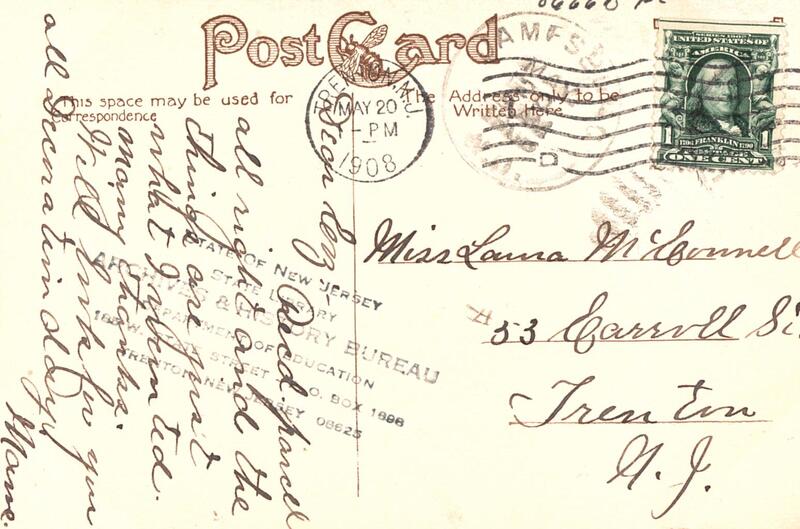 Post Card
This space may be used for
Correspondence
The Address only to be
Written Here
TRENTON, N.J.
MAY 20
- PM
1908
SERIES 1902
UNITED STATES OF
AMERICA
1706 FRANKLIN 1790
1 1
ONE CENT
Dear Liz, Rec'd parcel
all right and the
things are just
what I wanted.
Many thanks.
I'll look for you
all Decoration day.
Mame.
STATE OF NEW JERSEY
STATE LIBRARY
ARCHIVES & HISTORY BUREAU
DEPARTMENT OF EDUCATION
185 W. STATE STREET P.O. BOX 1898
TRENTON NEW JERSEY 08625
Miss Laura McConnell
53 Carroll St.
Trenton
N.J.